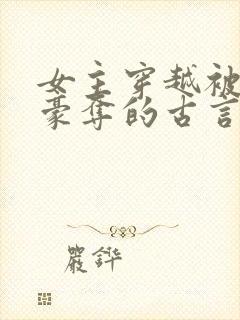 女主穿越被
豪夺的古言
严铧